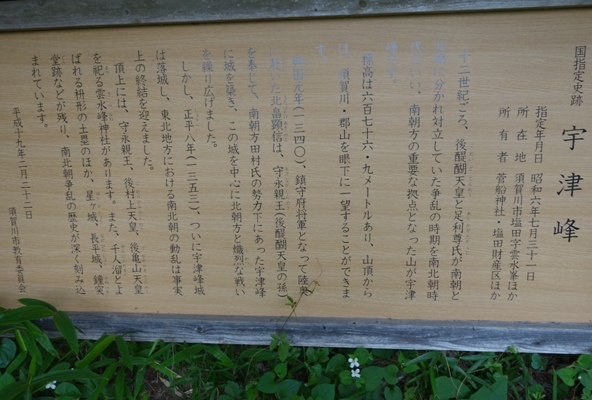 国指定史跡
宇津峰
指定年月日 昭和六年七月三十一日
所在地 須賀川市塩田字雲水峯ほか
所有者 菅船神社・塩田財産区ほか
十三世紀ごろ、後醍醐天皇と足利尊氏が南朝と
に分かれ対立していた争乱の時期を南北朝時
といい、南朝方の重要な拠点となった山が宇津
です。
標高は六百七十六・九メートルあり、山頂から
は、須賀川・郡山を眼下に一望することができま
す。
元年(一三四〇)、鎮守府将軍となって陸奥
いた北畠顕信は、守永親王(後醍醐天皇の孫)
を奉じて、南朝方田村氏の勢力下にあった宇津峰
に城を築き、この城を中心に北朝方と熾烈な戦い
を繰り広げました。
しかし、正平八年(一三五三)、ついに宇津峰城
は落城し、東北地方における南北朝の動乱は事実
上の終結を迎えました。
頂上には、守永親王、後村上天皇、後亀山天皇
を祀る雲水峰神社があります。また、千人溜とよ
ばれる枡形の土塁のほか、星ヶ城、長平城、鐘突
堂跡などが残り、南北朝争乱の歴史が深く刻み込
まれています。
平成十九年二月二十二日
須賀川市教育委員会